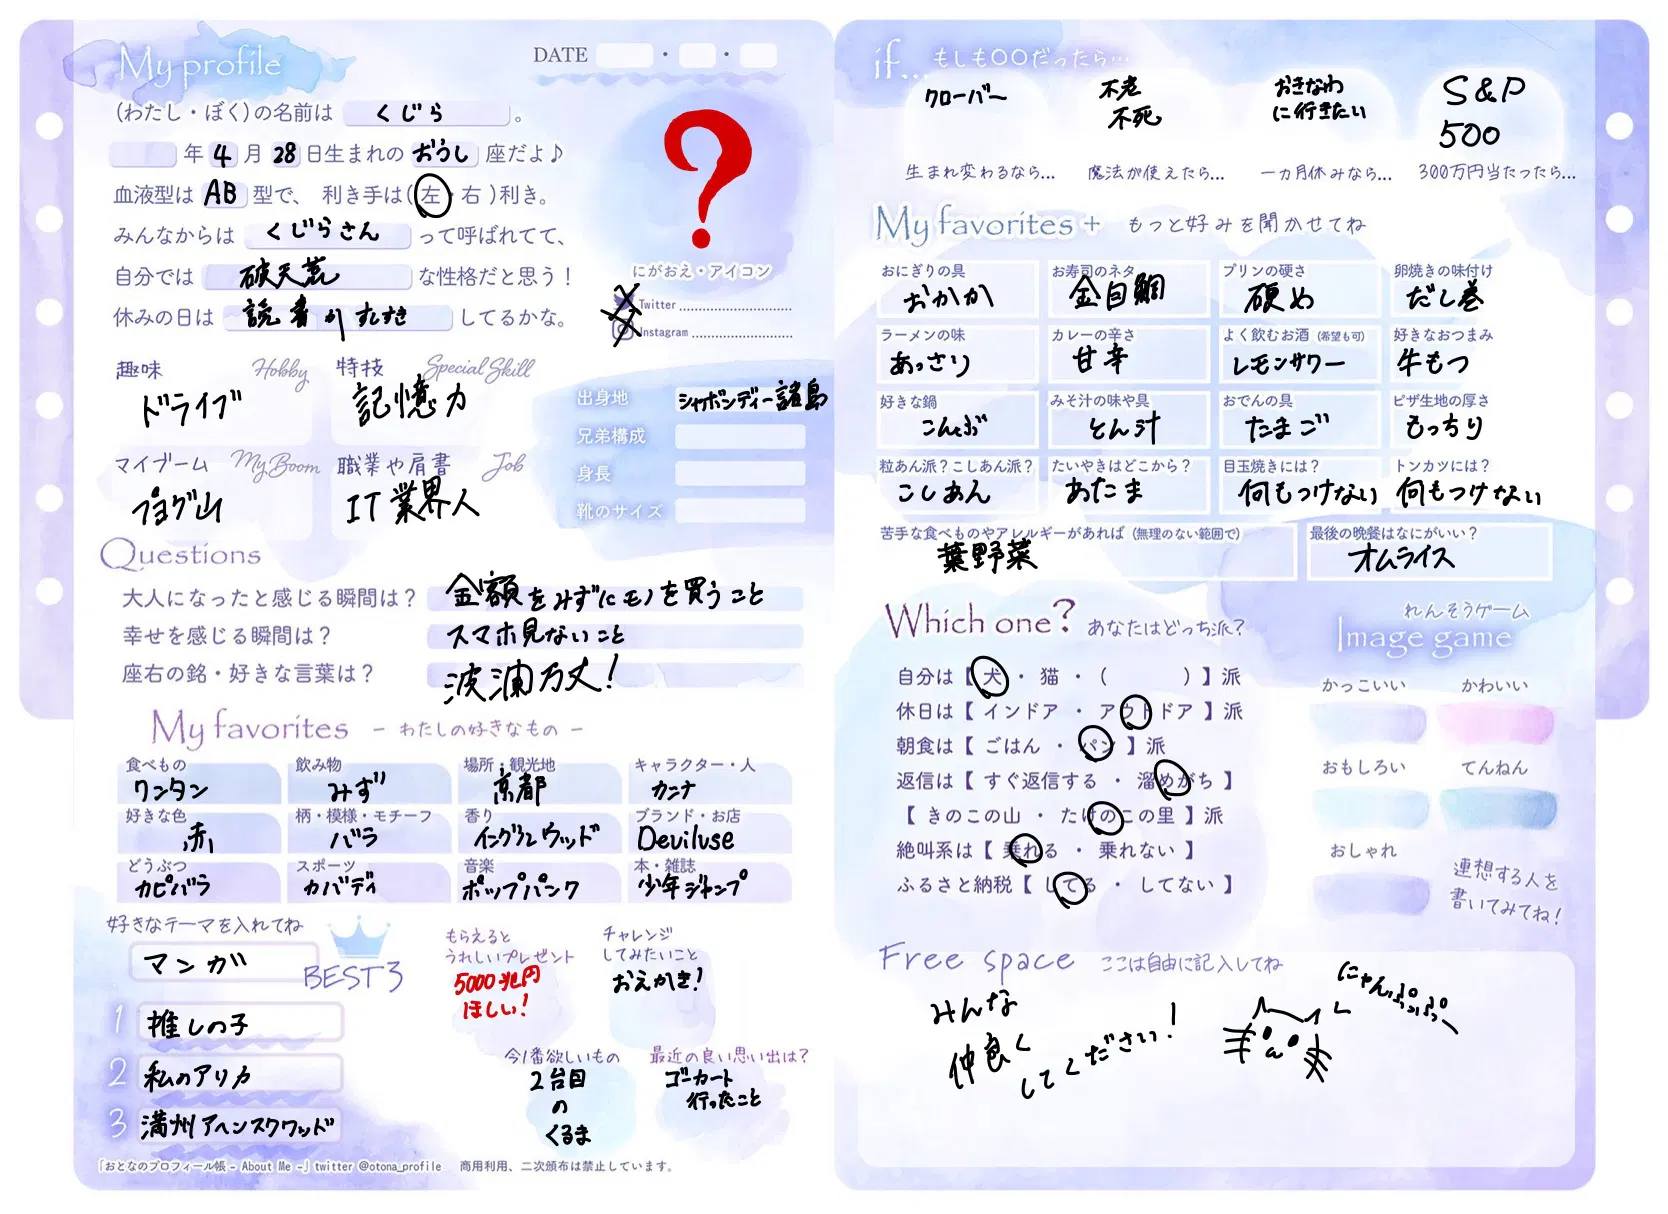 My profile
DATE ・ ・
(わたし・ぼく)の名前は くじら 。
年 4 月 28 日生まれの おうし 座だよ♪
血液型は AB 型で、 利き手は(左・右)利き。
みんなからは くじらさん って呼ばれてて、
自分では 破天荒 な性格だと思う!
休みの日は 読書かすしすき してるかな。
?
にがおえ・アイコン
Twitter
Instagram
趣味 Hobby
ドライブ
特技 Special Skill
記憶力
マイブーム My Boom
職業や肩書 Job
IT業界人
出身地 シャボンディー諸島
兄弟構成
身長
靴のサイズ
Questions
大人になったと感じる瞬間は? 金額をみずにモノを買うこと
幸せを感じる瞬間は? スマホ見ないこと
座右の銘・好きな言葉は? 波瀾万丈!
My favorites - わたしの好きなもの -
食べもの
ワンタン
飲み物
みず
場所・観光地
京都
キャラクター・人
カニナ
好きな色
赤
柄・模様・モチーフ
バラ
香り
イングリッシュウッド
ブランド・お店
Deviluse
どうぶつ
カピバラ
スポーツ
カバディ
音楽
ポップパンク
本・雑誌
少年ジャンプ
好きなテーマを入れてね
マンガ
BEST3
1 推しの子
2 私のアリカ
3 満州アヘンスクワッド
もらえると
うれしいプレゼント
5000兆円
ほしい!
チャレンジ
してみたいこと
おえかき!
今1番欲しいもの
2台目
の
くるま
最近の良い思い出は?
ゴーカート
行ったこと
「おとなのプロフィール帳 - About Me -」twitter @otona_profile 商用利用、二次頒布は禁止しています。
if... もしも○○だったら…
クローバー
生まれ変わるなら…
不老
不死
魔法が使えたら…
おきなわ
に行きたい
一カ月休みなら…
S&P
500
300万円当たったら…
My favorites + もっと好みを聞かせてね
おにぎりの具
おかか
お寿司のネタ
金目鯛
プリンの硬さ
硬め
卵焼きの味付け
だし巻
ラーメンの味
あっさり
カレーの辛さ
甘辛
よく飲むお酒 (希望も可)
レモンサワー
好きなおつまみ
牛もつ
好きな鍋
こんぶ
みそ汁の味や具
とん汁
おでんの具
たまご
ピザ生地の厚さ
もっちり
粒あん派?こしあん派?
こしあん
たいやきはどこから?
あたま
目玉焼きには?
何もつけない
トンカツには?
何もつけない
苦手な食べものやアレルギーがあれば (無理のない範囲で)
葉野菜
最後の晩餐はなにがいい?
オムライス
Which one? あなたはどっち派?
自分は【 犬 ・ 猫 ・ ( ) 】派
休日は【 インドア ・ アウトドア 】派
朝食は【 ごはん ・ パン 】派
返信は【 すぐ返信する ・ 溜めがち 】
【 きのこの山 ・ たけのこの里 】派
絶叫系は【 乗れる ・ 乗れない 】
ふるさと納税【 してる ・ してない 】
れんそうゲーム
Image game
かっこいい
かわいい
おもしろい
てんねん
おしゃれ
連想する人を
書いてみてね!
Free space ここは自由に記入してね
みんな
仲良く
してください!
にゃんぷっぷー